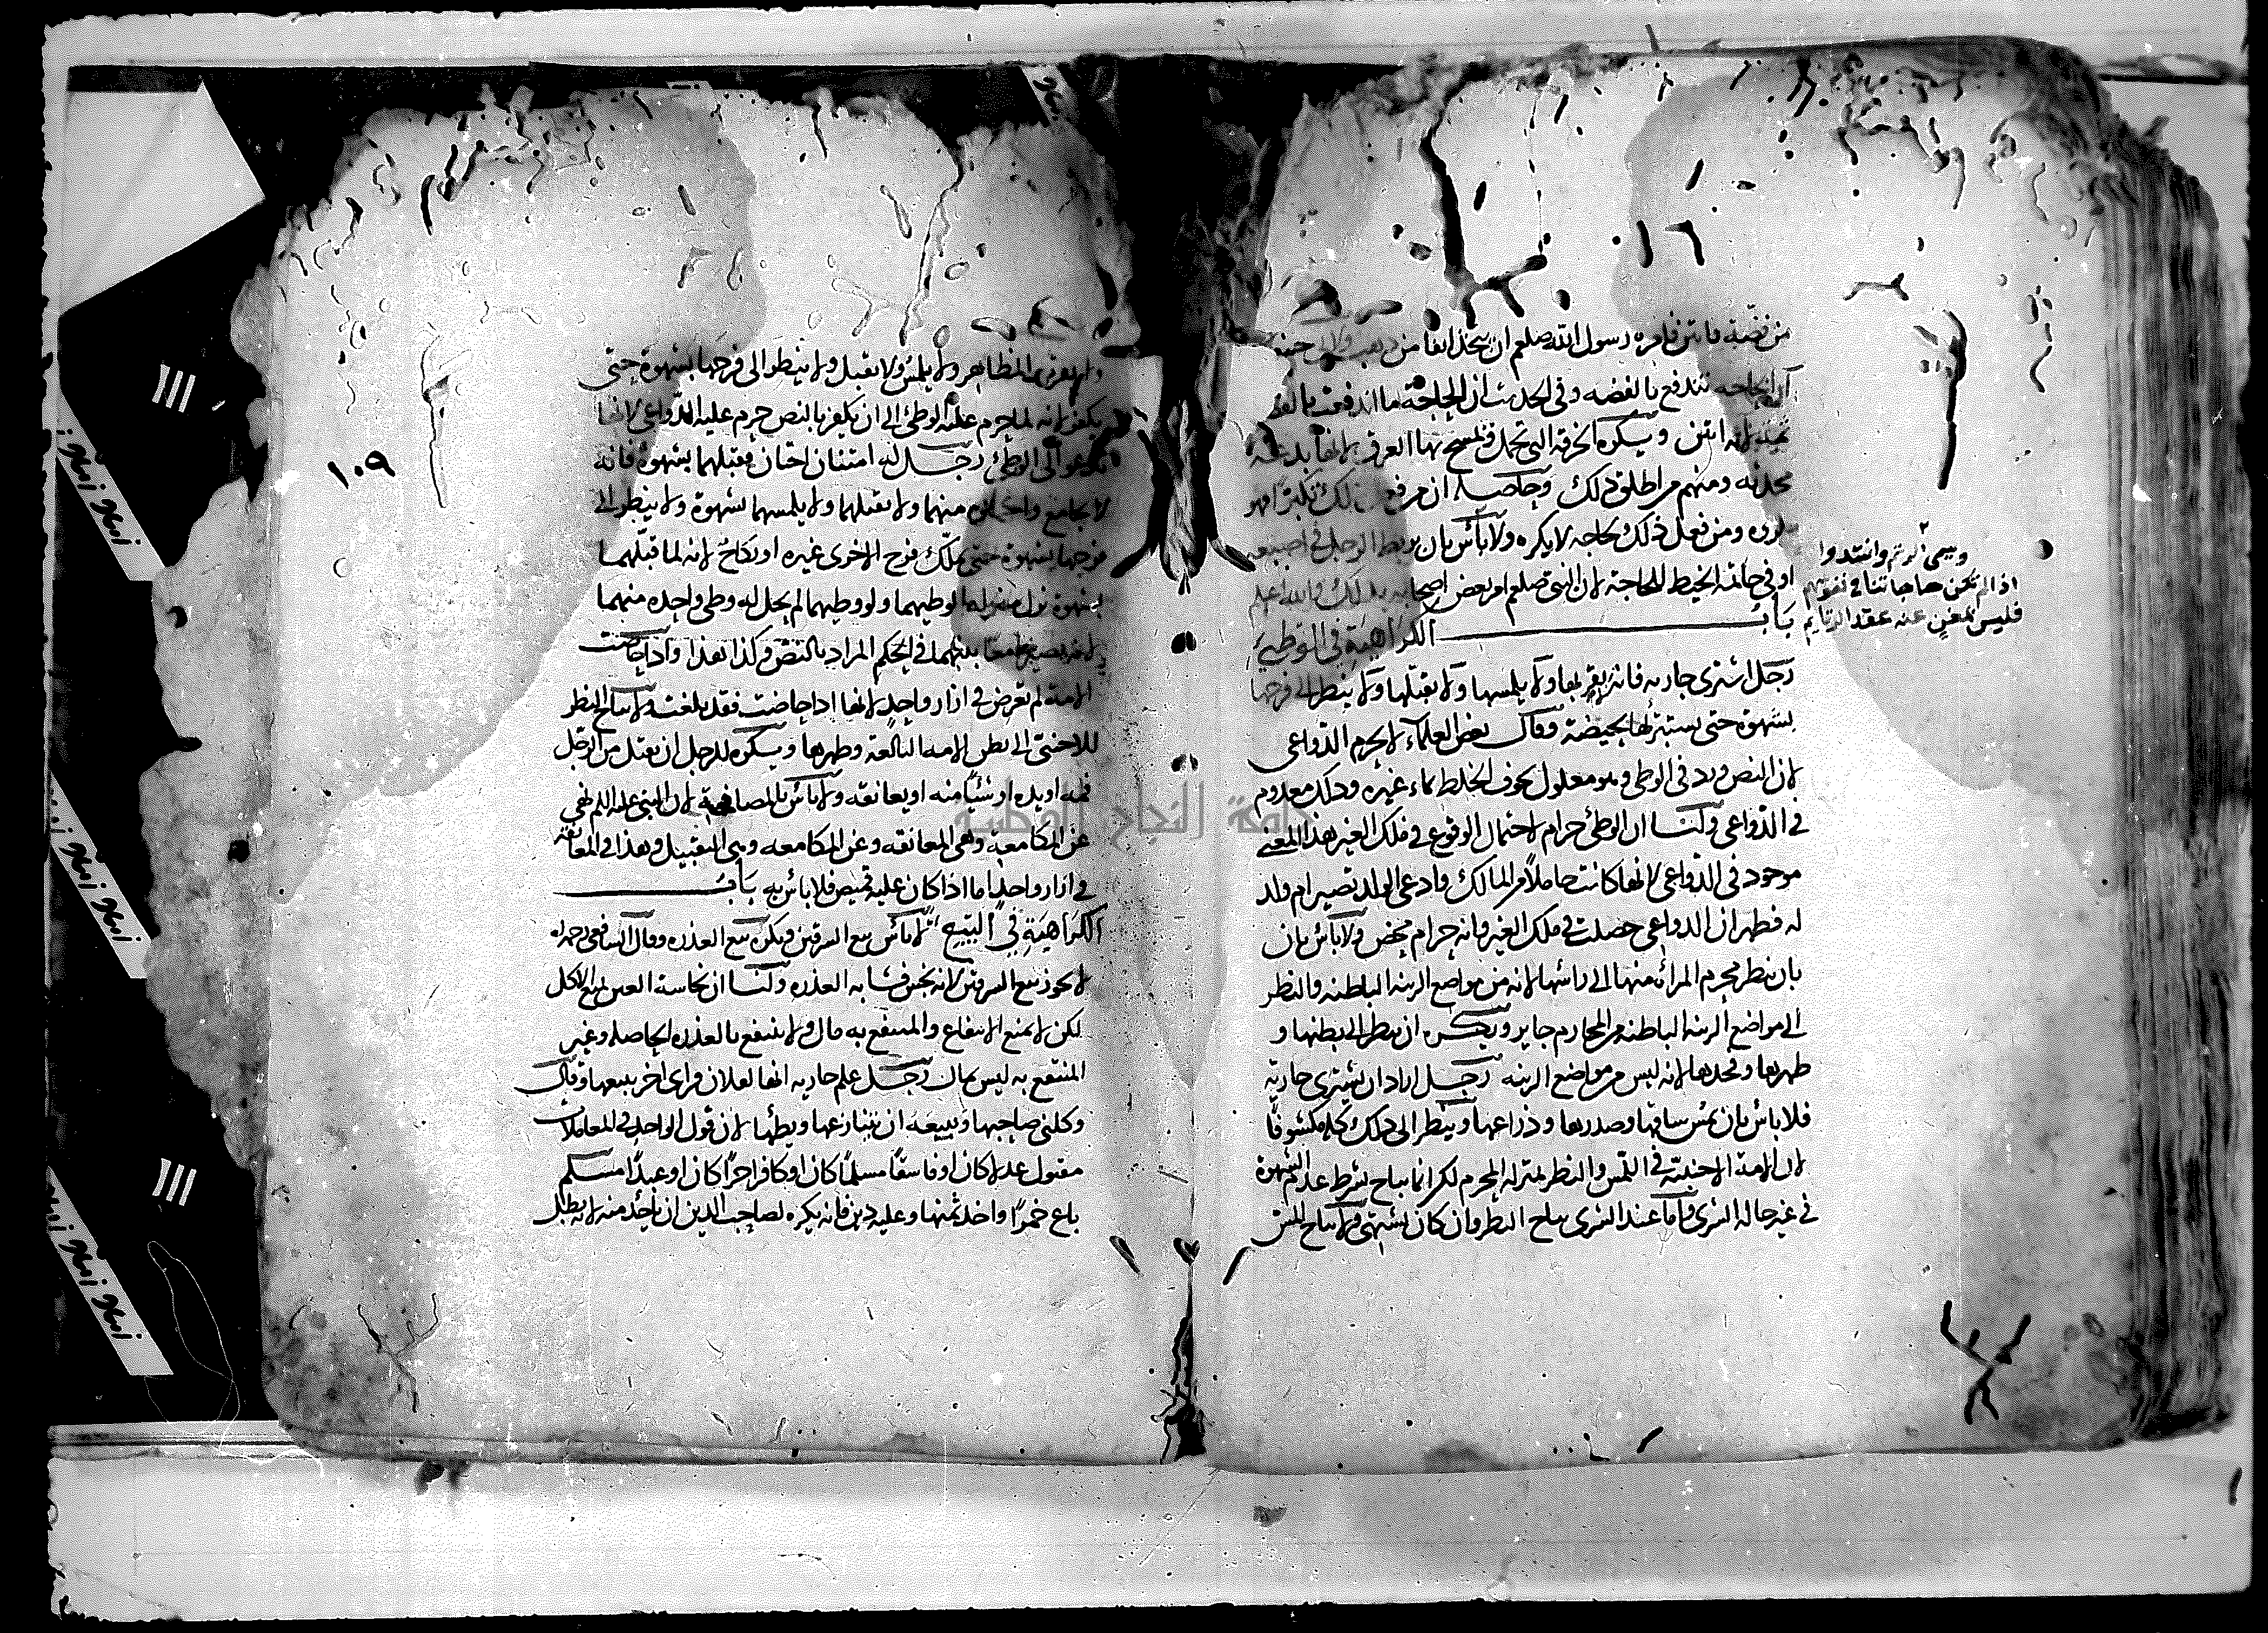 من فضة فانتن فامره رسول الله صلعم ان يتخذ انفا من
الحاجه تندفع بالفضه وفى الحديث ان الحاجة ما اندفعت بالفضه
لانه انتن ويكره الخرقه التى تحمل فيمسح بها العرق لانها بدعه
محدثه ومنهم من اطلق ذلك وحاصله ان من فعل ذلك تكبرا فهو
مكروه ومن فعل ذلك لحاجه لا يكره ولا باس بان يربط الرجل فى اصبعه
او فى خاتمه الخيط للحاجة لان النبى صلعم امر بعض اصحابه بذلك والله اعلم
ويسمى الرتم وانشدوا
اذا لم تكن حاجاتنا فى نفوسهم
فليس بمغن عنه عقد الرتايم
باب الكراهية فى الوطئ
رجل اشترى جاريه فانه لا يقربها ولا يلمسها ولا يقبلها ولا ينظر الى فرجها
بشهوة حتى يستبرئها بحيضة وقال بعض العلماء لا يحرم الدواعى
لان النص ورد فى الوطى وهو معلول بخوف الخلط بماء غيره وذلك معدوم
فى الدواعى ولنا ان الوطئ حرام لاحتمال الوقوع فى ملك الغير هذا المعنى
موجود فى الدواعى لانها كانت حاملا من المالك وادعى الولد تصير ام ولد
له فظهر ان الدواعى حصلت فى ملك الغير وانه حرام محض ولا باس بان
بان ينظر محرم المراة منها الى راسها لانه من مواضع الزينه الباطنه والنظر
الى مواضع الزينه الباطنه من المحارم جايز ويكره ان ينظر الى بطنها و
ظهرها وفخدها لانه ليس من مواضع الزينه رجل اراد ان يشترى جاريه
فلا باس بان يمس ساقها وصدرها وذراعها وينظر الى ذلك كله مكشوفا
لان الامة الاجنبية فى اللمس والنظر بمنزله المحرم لكن انما يباح بشرط عدم الشهوة
فى غير حالة الشرى واما عند الشرى يباح النظر وان كان يشتهى ولا يباح المس
المظاهر ولا يلمس ولا يقبل ولا ينظر الى فرجها بشهوة حتى
يكفر لانه لما حرم عليه الوطئ الى ان يكفر بالنص حرم عليه الدواعى لانها
تدعو الى الوطئ رجل له امتان اختان فقبلهما بشهوة فانه
لا يجامع واحده منهما ولا يقبلهما ولا يلمسهما بشهوة ولا ينظر الى
فرجها بشهوة حتى يملك فرج الاخرى غيره او نكاح لانه لما قبلهما
بشهوة نزل منزله لوطيهما ولو وطيهما لم يحل له وطى واحده منهما
فى الحكم المراد بالنص وكذا هذا واذا حاضت
الامة لم تعرض فى ازار واحد لانها اذا حاضت فقد بلغت ولا يباح النظر
للاجنبى الى بطن الامه البالغه وظهرها ويكره للرجل ان يقبل من الرجل
فمه او يده او شيئا منه او يعانقه ولا باس بالمصافحة لان النبى عليه السلم نهى
عن المكامعة وهى المعانقه وعن المكاعمه وهى التقبيل وهذا فى المعانقه
فى ازار واحد اما اذا كان عليه قميص فلا باس به باب
الكراهية فى البيع لا باس ببيع السرقين ويكره بيع العذره وقال الشافعى رحمه الله
لا يجوز بيع السرقين لانه نجس فشابه العذره ولنا ان نجاسة العين تمنع الاكل
لكن لا تمنع الانتفاع والمنتفع به مال ولا ينتفع بالعذره الخاصله وغير
المنتفع به ليس بمال رجل علم جاريه انها لفلان فراى اخر يبيعها وقال
وكلنى صاحبها ببيعه ان يبتاعها ويطئها لان قول الواحد فى المعاملات
مقبول عدلا كان او فاسقا مسلما كان او كافرا حرا كان او عبدا مسلم
باع خمرا واخذ ثمنها وعليه دين فانه يكره لصاحب الدين ان ياخذ منه لانه بطل
١٠٩